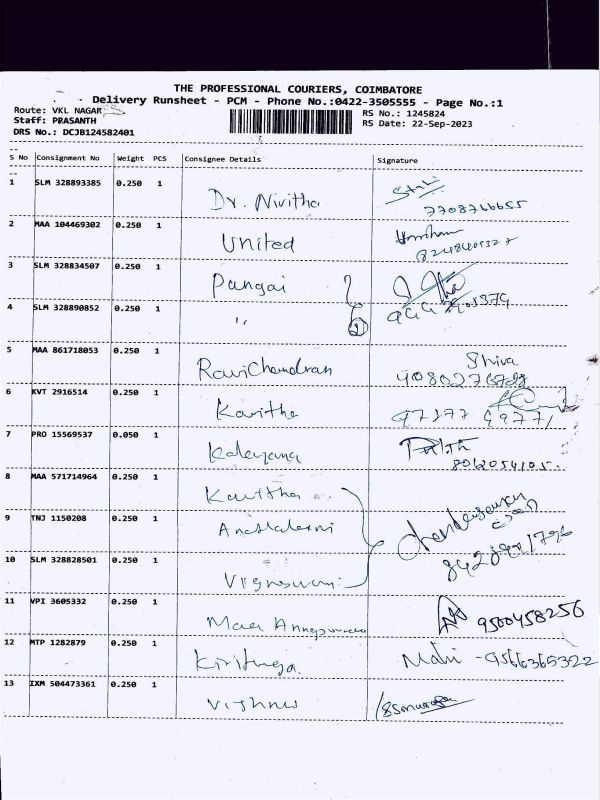 THE PROFESSIONAL COURIERS, COIMBATORE
Delivery Runsheet - PCM - Phone No.:0422-3505555 - Page No.:1
Route: VKL NAGAR RS No.: 1245824
Staff: PRASANTH RS Date: 22-Sep-2023
DRS No.: DCJB124582401
S No Consignment No Weight PCS Consignee Details Signature
1 SLM 328893385 0.250 1 Dr. Nivitha
7708766655
2 MAA 104469302 0.250 1 United
8248405327
3 SLM 328834507 0.250 1 Pangai
4 SLM 328890852 0.250 1 " 2
5 MAA 861718053 0.250 1 RaviChandran Shiva
6 KVT 2916514 0.250 1 Kavitha
97877 49771
7 PRO 15569537 0.050 1 Kaleyana
8 MAA 571714964 0.250 1 Kavitha
9 TNJ 1150208 0.250 1
10 SLM 328828501 0.250 1
11 VPI 3605332 0.250 1 Maa
9500458256
12 MTP 1282879 0.250 1 Kirithiga Mahi - 9566365322
13 IXM 504473361 0.250 1 Vishnu